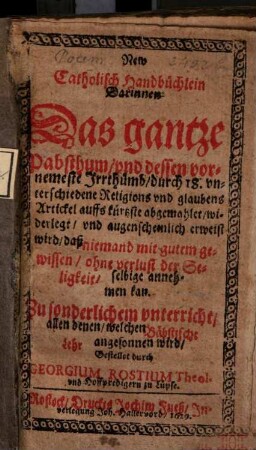 New
Catholisch Handbüchlein
Darinnen
Das gantze
Pabsthum/vnd dessen vor-
nemeste Irrthümb/durch 18. vn-
terschiedene Religions vnd glaubens
Artickel auffs kürtzste abgemahlet/wi-
derlegt/ vnd augenscheinlich erweist
wird/daß niemand mit gutem ge-
wissen/ ohne verlust der Se-
ligkeit/ selbige anneh-
men kan.
Zu sonderlichem vnterricht/
allen denen/welchen Bäbstische
lehr angesonnen wird/
Gestellet durch
GEORGIUM ROSTIUM Theol.
vnd Hoffpredigern zu Lüpse.
Rostock/ Druckts Jochim Fueß/ In
verlegung Joh. Hallervord/